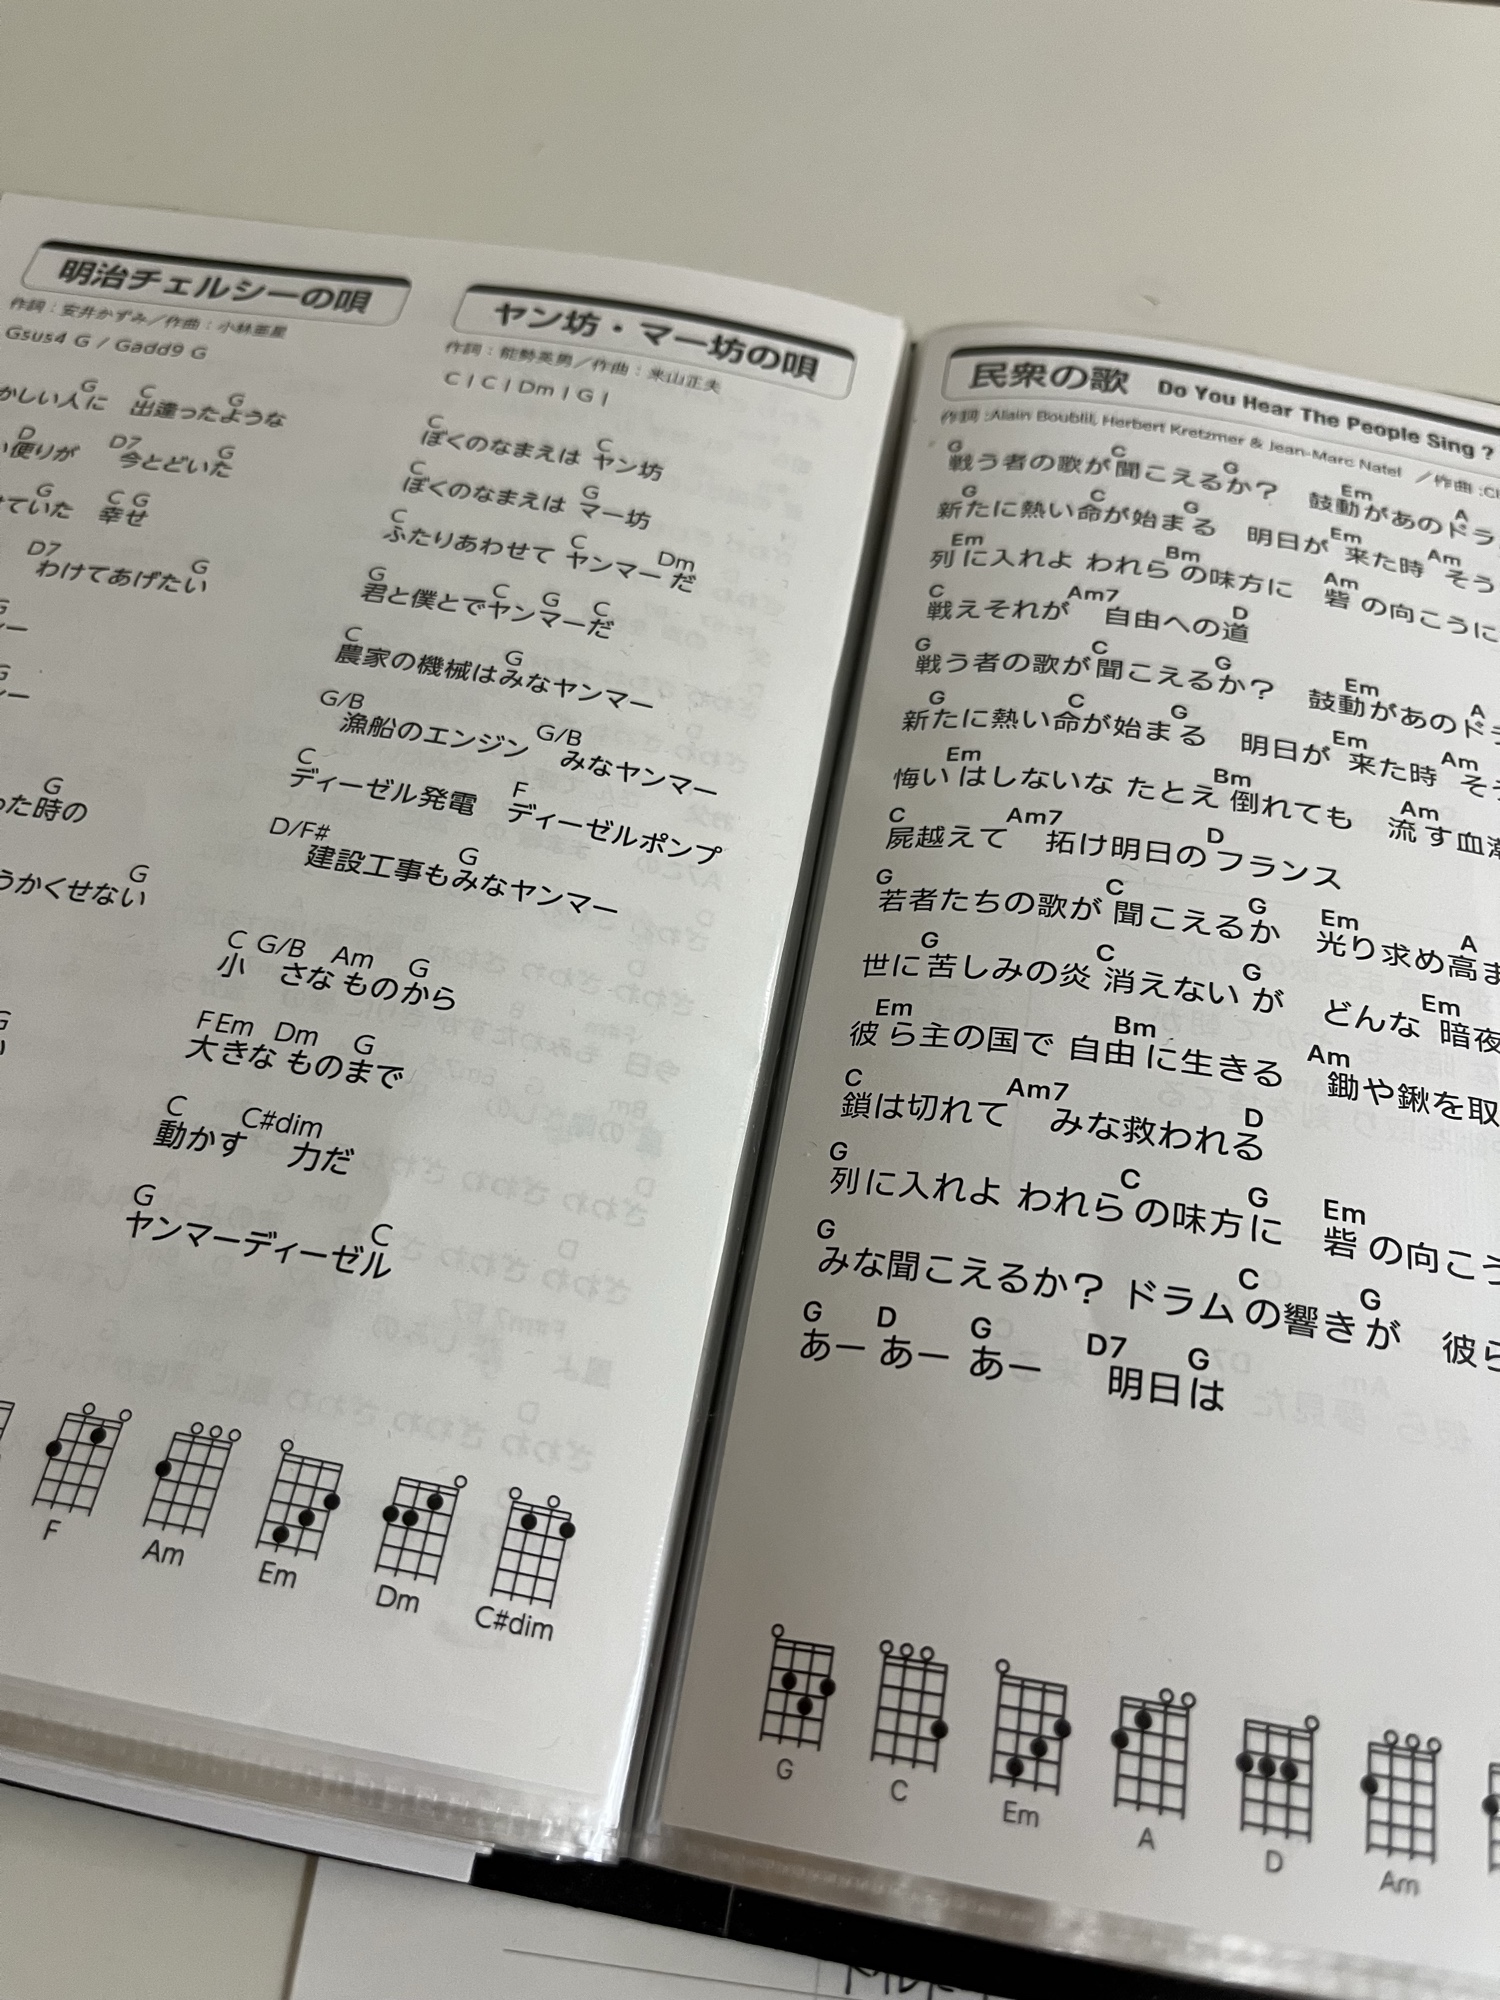 明治チェルシーの唄
作詞：安井かずみ／作曲：小林亜星
Gsus4 G / Gadd9 G
G C G
かしい人に 出逢ったような
D D7 G
便りが 今とどいた
G C G
ていた 幸せ
D7 G
わけてあげたい
G
ー
G
ー
G
った時の
G
うかくせない
G
ヤン坊・マー坊の唄
作詞：能勢英男／作曲：米山正夫
C / C / Dm / G /
C C
ぼくのなまえは ヤン坊
C G
ぼくのなまえは マー坊
C C Dm
ふたりあわせて ヤンマーだ
G C G C
君と僕とでヤンマーだ
C G
農家の機械はみなヤンマー
G/B G/B
漁船のエンジン みなヤンマー
C F
ディーゼル発電 ディーゼルポンプ
D/F# G
建設工事もみなヤンマー
C G/B Am G
小さなものから
F Em Dm G
大きなものまで
C C#dim
動かす 力だ
G C
ヤンマーディーゼル
F Am Em Dm C#dim
民衆の歌 Do You Hear The People Sing ?
作詞 :Alain Boublil, Herbert Kretzmer & Jean-Marc Natel ／作曲 :Cl
G C G Em A
戦う者の歌が聞こえるか？ 鼓動があのドラ
G C G Em Am
新たに熱い命が始まる 明日が来た時 そう
Em Bm Am
列に入れよ われらの味方に 砦の向こうに
C Am7 D
戦えそれが 自由への道
G C G Em A
戦う者の歌が聞こえるか？ 鼓動があのドラ
G C G Em Am
新たに熱い命が始まる 明日が来た時 そう
Em Bm Am
悔いはしないな たとえ倒れても 流す血潮
C Am7 D
屍越えて 拓け明日のフランス
G C G Em A
若者たちの歌が聞こえるか 光り求め高ま
G C G Em
世に苦しみの炎 消えないが どんな暗夜
Em Bm Am
彼ら主の国で 自由に生きる 鋤や鍬を取
C Am7 D
鎖は切れて みな救われる
G C G Em
列に入れよ われらの味方に 砦の向こう
G C G
みな聞こえるか？ ドラムの響きが 彼ら
G D G D7 G
あー あー あー 明日は
G C Em A D Am